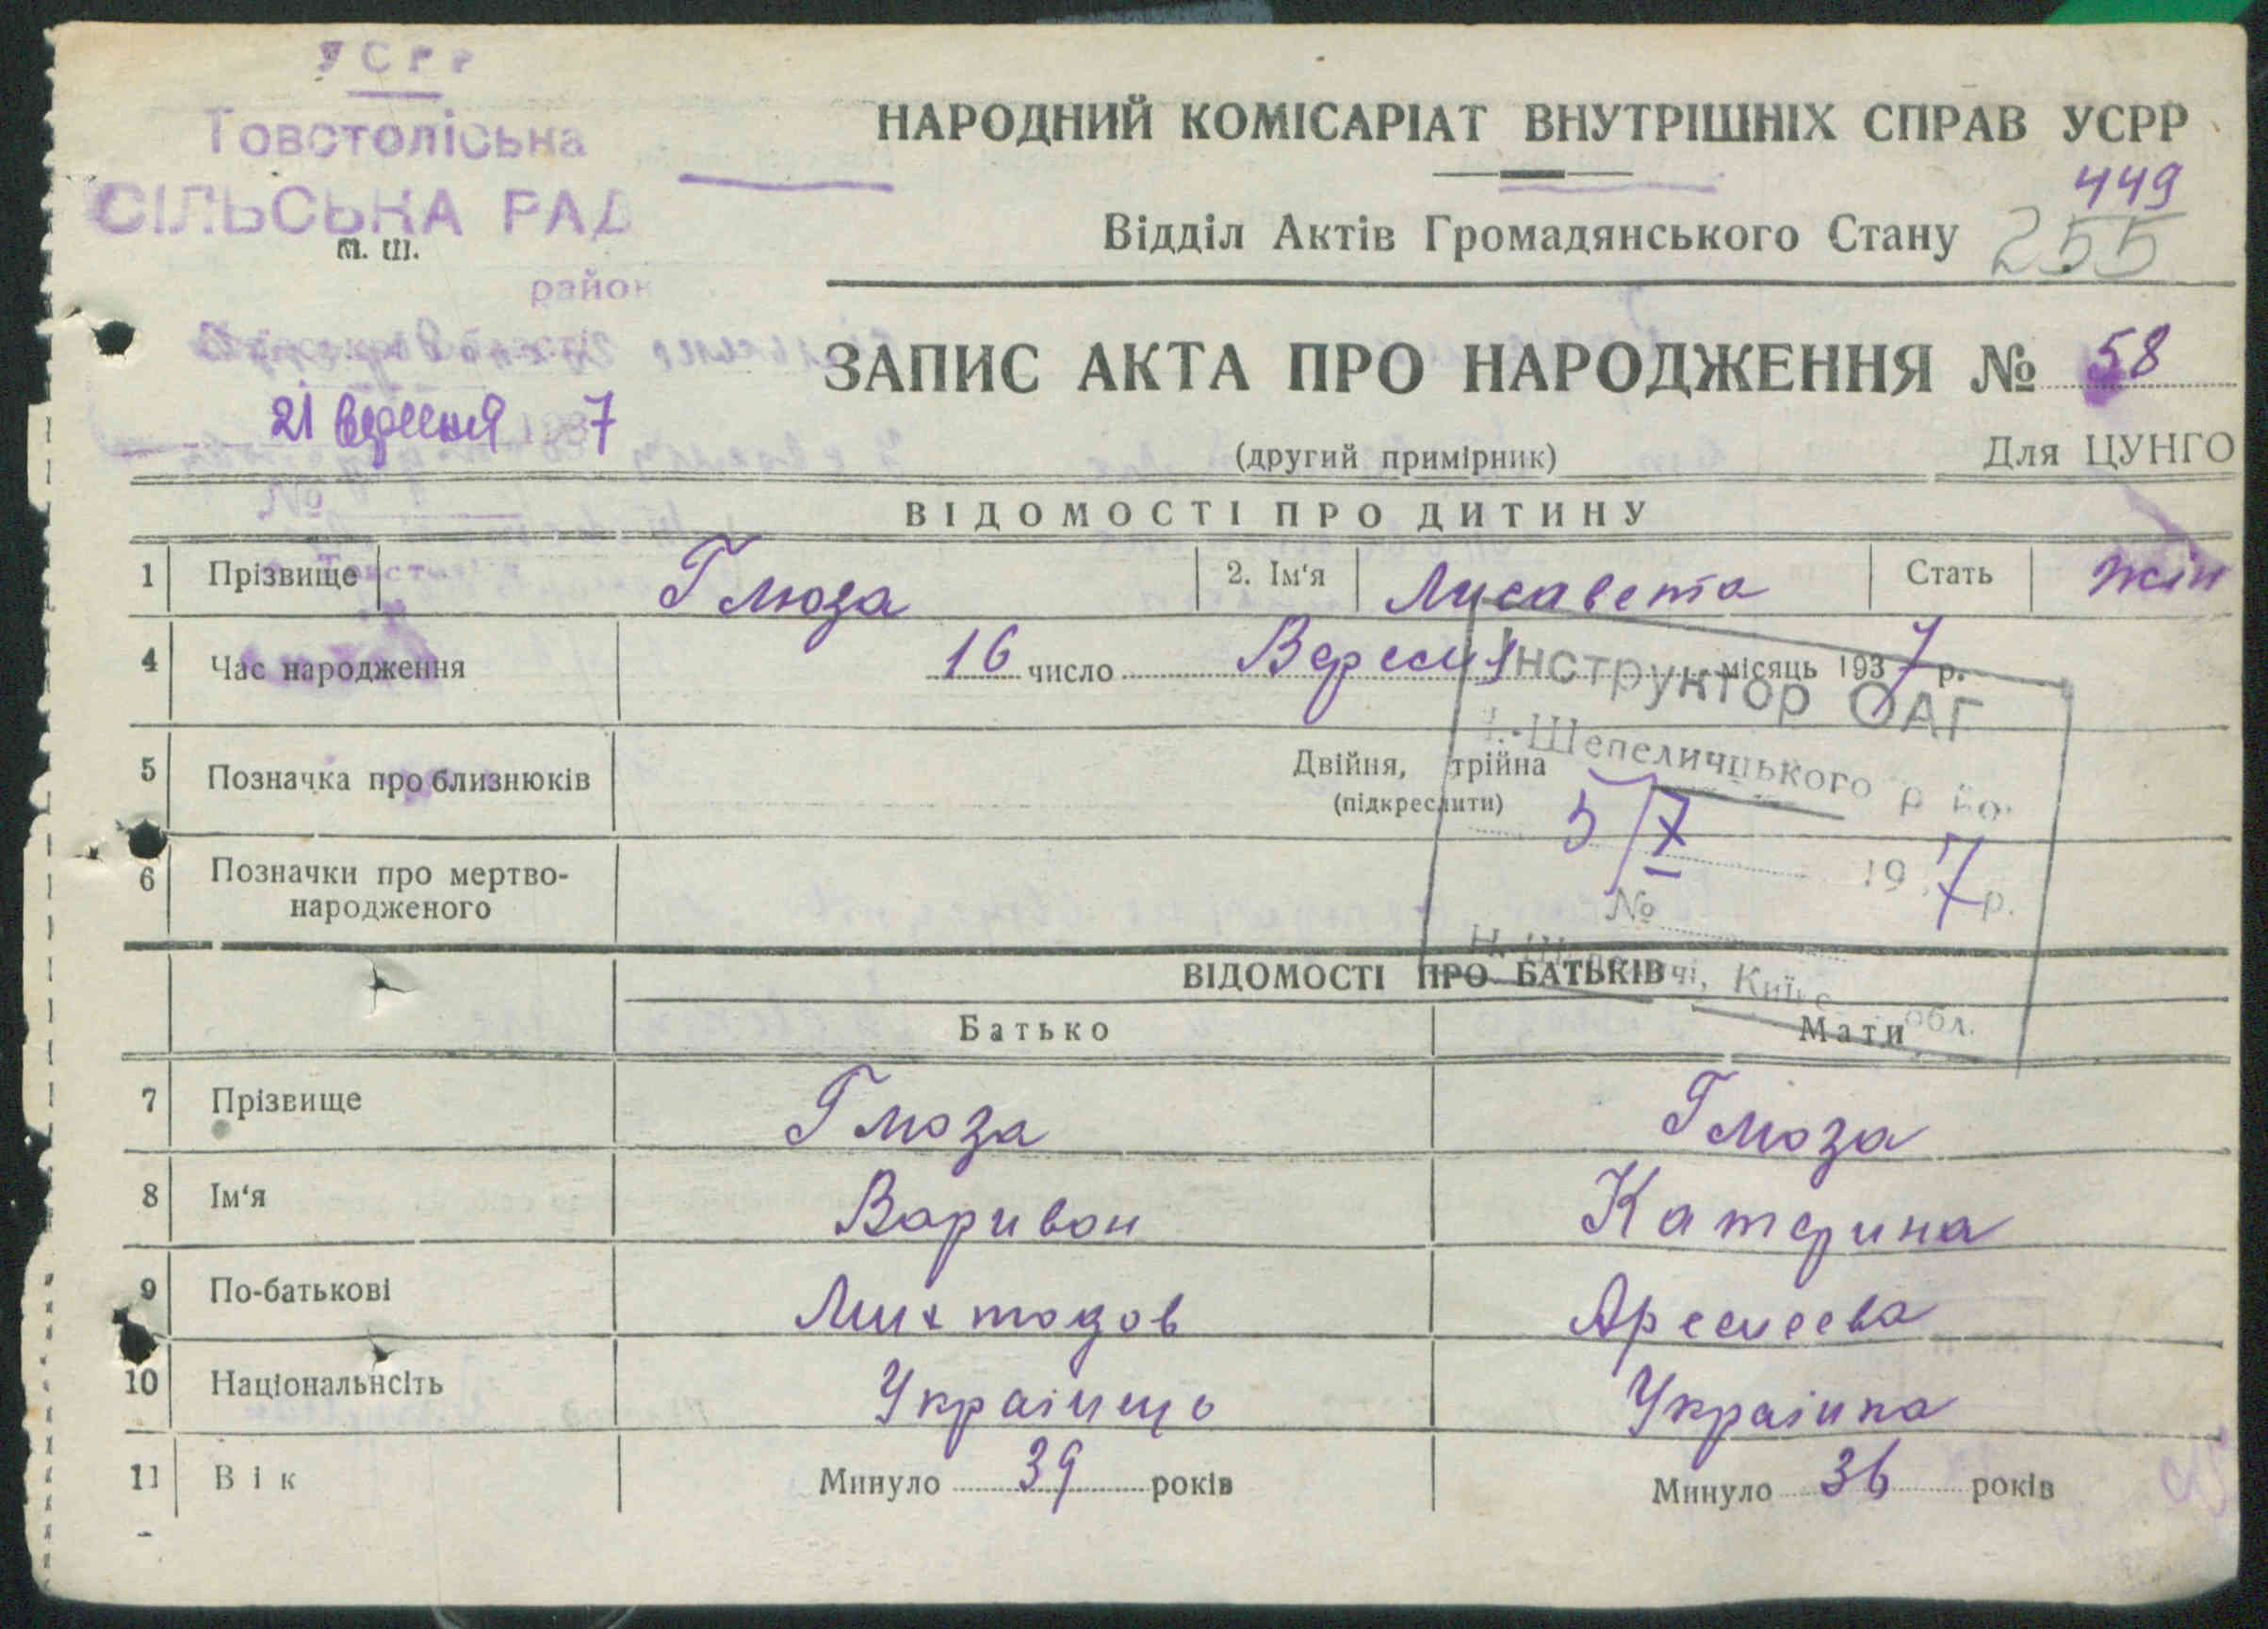 УСРР
Товстоліська
СІЛЬСЬКА РАД
м. ш.
район
21 вересня 7
№
НАРОДНИЙ КОМІСАРІАТ ВНУТРІШНІХ СПРАВ УСРР
449
Відділ Актів Громадянського Стану 255
ЗАПИС АКТА ПРО НАРОДЖЕННЯ № 58
(другий примірник)
Для ЦУНГО
ВІДОМОСТІ ПРО ДИТИНУ
1 Прізвище Глюза 2. Ім'я Лисавета Стать жін
4 Час народження 16 число Вересня місяць 1937 р.
Інструктор ОАГ
Шепеличцького
5 Позначка про близнюків Двійня, трійна
(підкреслити)
5/X 197 р.
№
6 Позначки про мертво-
народженого
ВІДОМОСТІ ПРО БАТЬКІВ
обл.
Батько Мати
7 Прізвище Глюза Глюза
8 Ім'я Варивон Катерина
9 По-батькові
10 Національнсіть Українць Українка
11 Вік Минуло 39 років Минуло 36 років